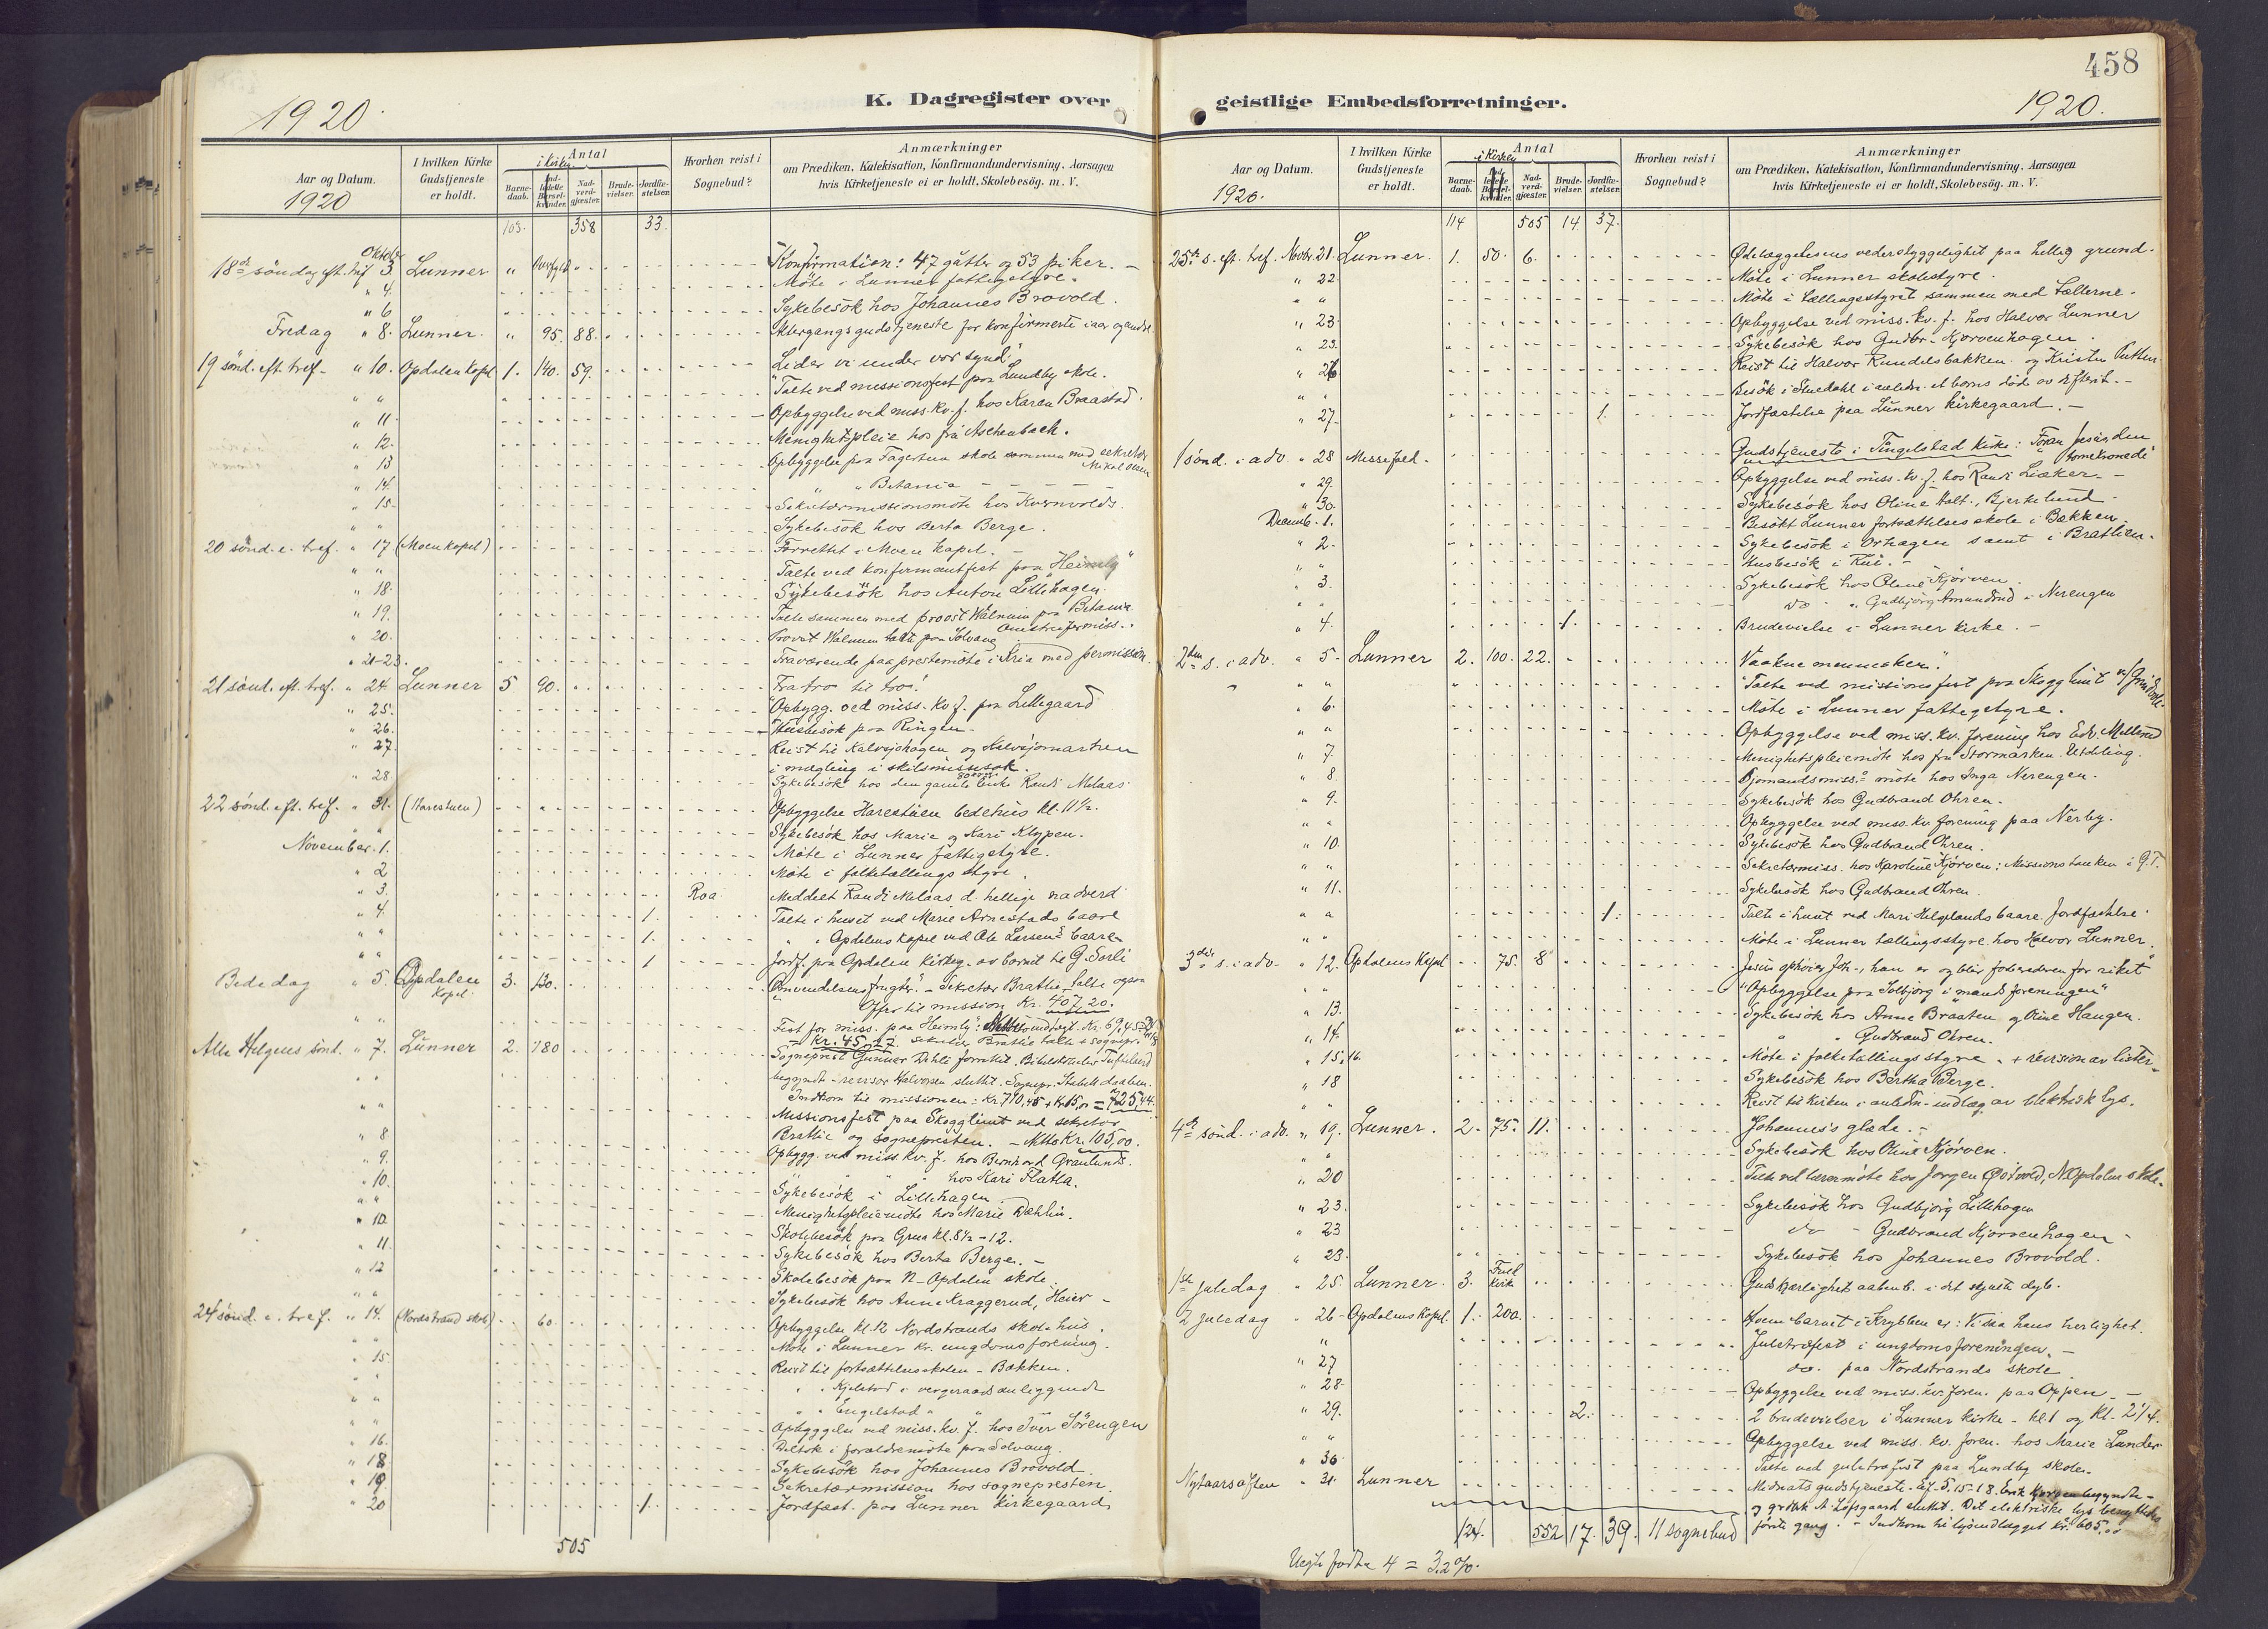 458
1920.
K. Dagregister over
geistlige Embedsforretninger.
1920.
Aar og Datum.
1920
I hvilken Kirke Gudstjeneste er holdt.
i Kirken
Antal
Barne-daab.
Ind-ledede Barsel-kvinder.
Nad-verd-gjæster.
Brude-vielser.
Jordfæ-stelser.
Hvorhen reist i Sognebud?
Anmærkninger
om Prædiken, Katekisation, Konfirmandundervisning, Aarsagen
hvis Kirketjeneste ei er holdt, Skolebesög. m. V.
103. 358 33.
18de söndag eft. tref Oktober 3. Lunner " Overfyldt " Konfirmation: 47 gutter og 53 piker. –
" 4. Möte i Lunner fattigstyre.
" 6 Sykebesök hos Johannes Brovold.
Fredag " 8. Lunner. " 95. 88. Altergangsgudstjeneste for konfirmerte iaar og andre.
19 sönd. eft. tref. " 10. Opdalen Kapel 1. 140. 59. Lider vi under vor synd?
" " Talte ved missionsfest paa Lundby skole.
" 11 Opbyggelse ved miss. kv. f. hos Karen Braastad.
" 12. Menighetspleie hos fru Aschenbach.
" 13 Opbyggelse paa Fagertun skole sammen med sekretær Mikal Olsen
" 14. " " Betania – – – –
" 15. Sekretærmissionsmöte hos Kvernvolds.
" " Sykebesök hos Berta Berge
20 sönd. e. tref. " 17 (Moen kapel) Forrettet i Moen kapel. –
" " Talte ved konfirmantfest paa "Heimly"
" 18. Sykebesök hos Anton Lillehagen.
" 19. Talte sammen med provst Walnum paa Betania
" 20. Provst Walnum talte paa Solvang
" 21-23. Fraværende paa prestemöte i Kria med permission.
21 sönd. eft. tref. " 24 Lunner 5 90. Fra tro til tro!
" 25. Opbygg. ved miss. kv. f. paa Lillegaard
" 26. Husbesök paa Ringen.
" 27. Reist til Kalvsjöhagen og Kalvsjömarken
i mægling i skilsmissesak.
" 28. Sykebesök hos den gamle enke Randi Melaas
22 sönd. eft. tref. " 31. (Harestuen) Opbyggelse Harestuen bedehus kl. 11½.
" " Sykebesök hos Marie og Kari Klypen.
November. 1. Möte i Lunner fattigstyre.
" 2 Möte i folketællings styre.
" 3. Roa Meddelt Randi Melaas d. hellige nadverd
" 4. 1. Talte i huset ved Marie Arnestads baare
" " 1. " " Opdalens kapel ved Ole Larsens baare
" " 1 Jordf. paa Opdalen kirkeg. av barnet til G. Sorli
Bededag " 5. Opdalen Kapel. 3. 130. Omvendelsens frugter". – sekretær Bratlie talte ogsaa
Offer til mission Kr. 407.20.
" " Fest for miss. paa "Heimly":
Kr. 45.27. sekretær Bratlie talte + sognepr.
Alle Helgens sönd. " 7. Lunner 2. 180 Sogneprest Gunner Dehli forrettet.
begyndte – revisor Halvorsen sluttet.
" " Indkom til missionen: Kr. 710,45 + Kr. 15,00 = 725,44.
" " Missionsfest paa Skogglimt ved sekretær
Bratlie og sognepresten. – Netto Kr. 105,00.
" 8 Opbygg. ved miss. kv. f. hos Bernhard Granlund.
" 9. " " " hos Kari Flatla.
" 10. Sykebesök i Lillehagen.
" " Menighetspleiemöte hos Marie Dæhlin.
" 10. Skolebesök paa Grua kl. 8½ – 12.
" 11. Sykebesök hos Berta Berge. –
" 12 Skolebesök paa N-Opdalen skole.
" " Sykebesök hos Anne Kraggerud, Heier –
24 sönd. e. tref. " 14. (Nordstrand skole) 60. Opbyggelse kl. 12 Nordstrands skolehus.
" " Möte i Lunner kr. ungdomsforening.
" 15. Reist til fortsættelsesskolen – Bækken.
" " " " Kjelstad i vergeraads anliggende
" " " " Engelstad " "
" " Opbyggelse ved miss. kv. f. hos Iver Sörengen
" 16. Deltok i forældremöte paa Solvang.
" 18 Sykebesök hos Johannes Brovold.
" 19 Sekretærmission hos sognepresten.
" 20 1. Jordfæst. paa Lunner kirkegaard.
505
Aar og Datum.
1920.
I hvilken Kirke Gudstjeneste er holdt.
i Kirken
Antal
Barne-daab.
Ind-ledede Barsel-kvinder.
Nad-verd-gjæster.
Brude-vielser.
Jordfæ-stelser.
Hvorhen reist i Sognebud?
Anmærkninger
om Prædiken, Katekisation, Konfirmandundervisning, Aarsagen
hvis Kirketjeneste ei er holdt, Skolebesög. m. V.
114 505 14 37.
25de s. eft. tref. Novbr. 21. Lunner. 1. 50. 6. Ödelæggelsens vederstyggelighet paa hellig grund.
" 22. Möte i Lunner skolestyre.
" " Möte i tællingsstyret sammen med tællerne.
" 23. Opbyggelse ved miss. kv. f. hos Halvor Lunner
" 23. Sykebesök hos Gudbr. Kjörvenhagen.
" 26 Reist til Halvor Rundelsbakken og Kristen Putten
" " Besök i Stuedahl i anledn. et barns död av difterit. –
" 27. 1. Jordfæstelse paa Lunner kirkegaard. –
1 sönd. i adv. " 28 Messefald. Gudstjeneste i Tingelstad kirke: Foran Jesus den tornekronede
" 29. Opbyggelse ved miss. kv. f. hos Randi Liaker –
" 30. Sykebesök hos Oline Aalt., Bjerkelund
Decemb. 1. Besökt Lunner fortsættelsesskole i Bækken
" 2. Sykebesök i Orhagen samt i Bratlien.
" " Husbesök i Rui. –
" 3. Sykebesök hos Oline Kjörven.
" " do " Gudbjörg Amundrud i Nerengen
" 4. 1. Brudevielse i Lunner kirke. –
2den s. i adv. " 5. Lunner 2. 100. 22. Vaakne mennesker".
" " Talte ved missionsfest paa Skogglimt
" 6. Möte i Lunner fattigstyre.
" " Opbyggelse ved miss. kv. forening hos Edv. Mellerud
" 7 Menighetspleiemöte hos fru Stormarken. Utdeling.
" 8. Sjömandsmiss. möte hos Inga Nerengen.
" 9. Sykebesök hos Gudbrand Ohren.
" " Opbyggelse ved miss. kv. forening paa Nerby.
" 10. Sykebesök hos Gudbrand Ohren.
" " Sekretærmiss. hos Karoline Kjörven: Missionstanken i G.T.
" 11. Sykebesök hos Gudbrand Ohren
" " 1. Talte i huset ved Mari Helgelands baare. Jordfæstelse.
" " Möte i Lunner tællingsstyre hos Halvor Lunner.
3die s. i adv. " 12. Opdalens Kapel 75. 8 Jesus ophöier Joh., han er og blir forberederen for riket"
" " Opbyggelse paa Solbjörg i mands foreningen"
" 13. Sykebesök hos Anne Braaten og Oline Haugen.
" 14. " " Gudbrand Ohren.
" 15. 16. Möte i folketællings styre. + revision av lister –
" 18 Sykebesök hos Bertha Berge.
" " Reist til kirken i anledn. indlæg av elektrisk lys.
4de sönd. i adv. " 19. Lunner. 2. 75. 11. Johannes's glæde. –
" " Sykebesök hos Oline Kjörven.
" 20 Talte ved lærermöte hos Jörgen Östvold, N. Opdalen skole.
" 23. Sykebesök hos Gudbjörg Lillehagen
" 23 do – Gudbrand Kjörvenhagen –
" 23. Sykebesök hos Johannes Brovold.
1ste juledag " 25. Lunner. 3. Fuld kirke Guds kjærlighet aabenb. i det skjulte dyb.
2 juledag " 26 Opdalens Kapel. 1. 200. Hvem barnet i Krybben er: Vi saa hans herlighet.
" " Juletræfest i ungdomsforeningen. –
" 27 do. paa Nordstrands skole
" 28. Opbyggelse ved miss. kv. foren. paa Oppen. –
" 29. 2. 2 brudevielser i Lunner kirke – kl. 1 og kl. 2¼.
" " Opbyggelse ved miss. kv. foren. hos Marie Lunder
" 30 Talte ved juletræfest paa Lundby skole.
Nytaarsaften " 31. Lunner Midnatsgudstjeneste. Ef. 5. 15-18.
og grdbk A. Löfsgaard sluttet. Det elektriske lys benyttedes
förste gang. – Indkom til lysindlægget kr. 605,00
124. 552 17. 39. 11 sognebud
Uegte födte 4 = 3.2 %.